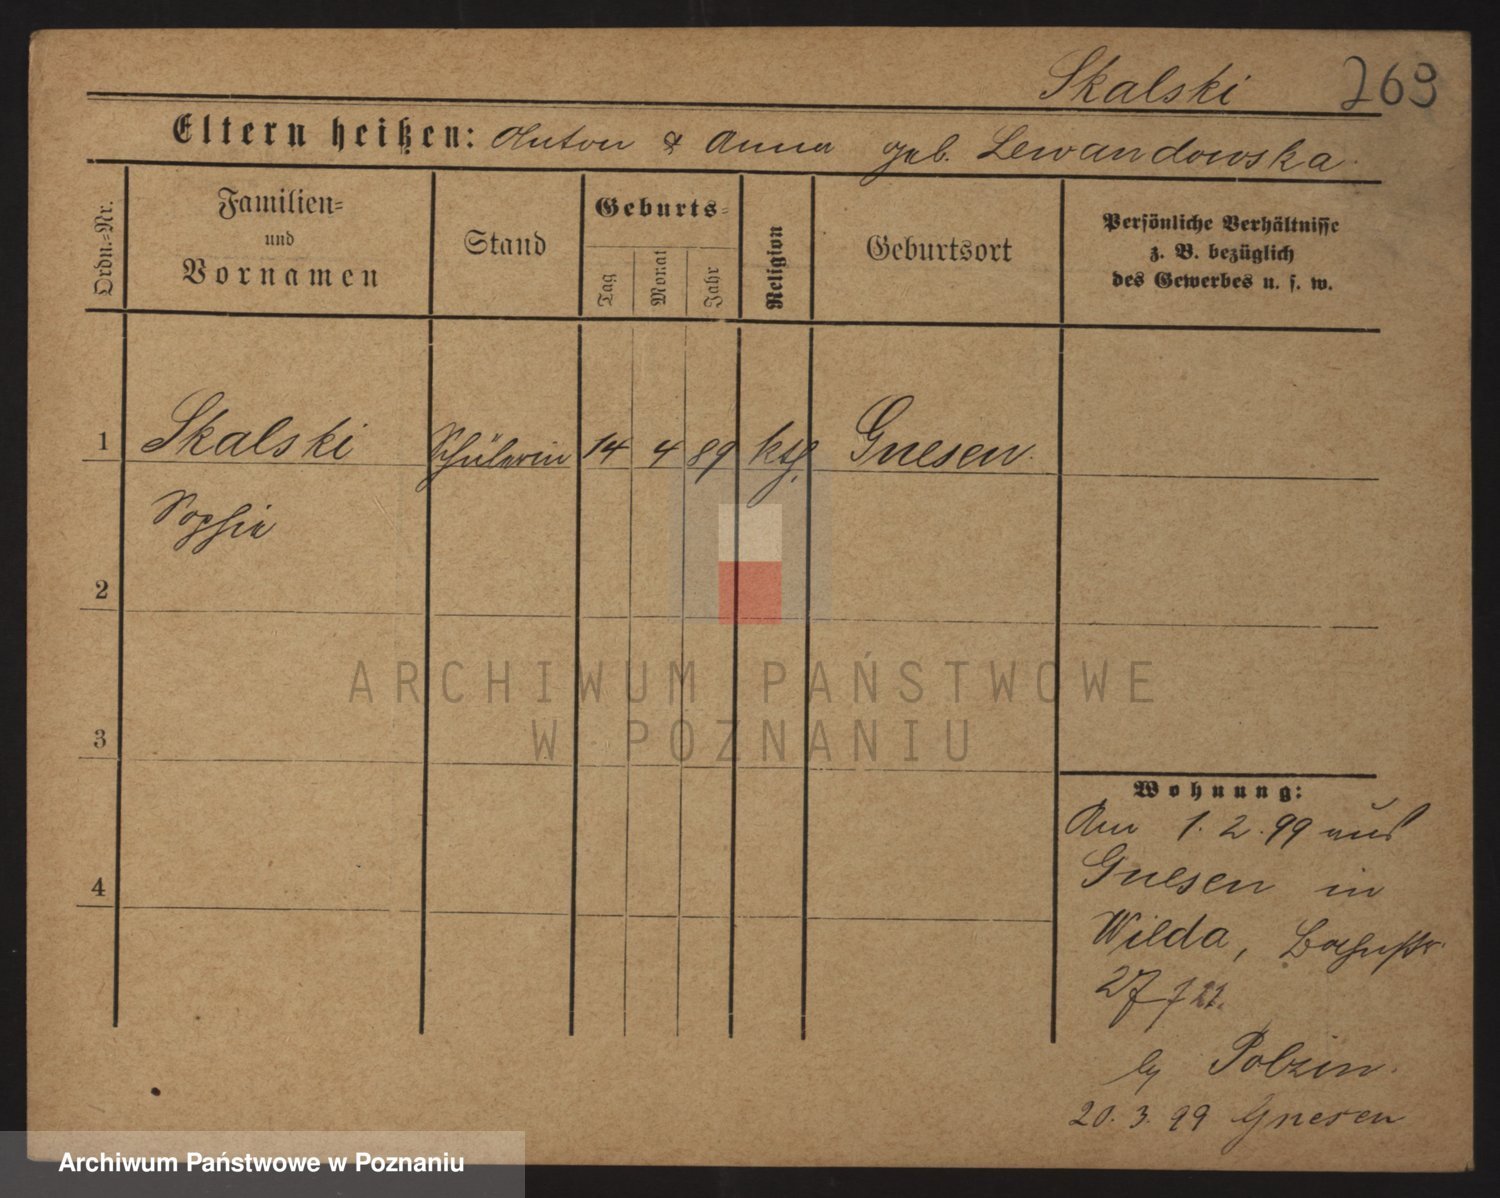 Skalski 269
Eltern heißen: Anton & Anna geb. Lewandowska.
Ordn.-Nr.
Familien-
und
Vornamen
Stand
Geburts-
Tag
Monat
Jahr
Religion
Geburtsort
Persönliche Verhältnisse
z. B. bezüglich
des Gewerbes u. s. w.
1 Skalski Schülerin 14 4 89 kth. Gnesen.
Sophie
2
3
4
ARCHIWUM PAŃSTWOWE
W POZNANIU
Wohnung:
Am 1. 2. 99 aus
Gnesen in
Wilda,
27
by Polzin.
20. 3. 99 Gnesen
Archiwum Państwowe w Poznaniu